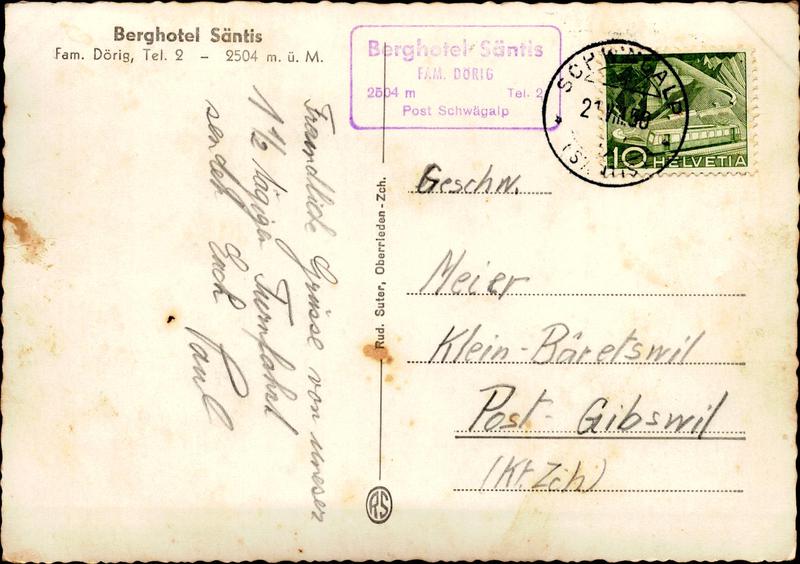 Berghotel Säntis
Fam. Dörig, Tel. 2 – 2504 m. ü. M.
Berghotel Säntis
FAM. DÖRIG
2504 m Tel. 2
Post Schwägalp
SCHWÄGALP
10 HELVETIA
Freundliche Grüsse von unserer
1 1/2 tägigen Turnfahrt
sendet Euch Paul
Rud. Suter, Oberrieden-Zch.
RS
Geschw.
Meier
Klein-Bäretswil
Post-Gibswil
(Kt. Zch)